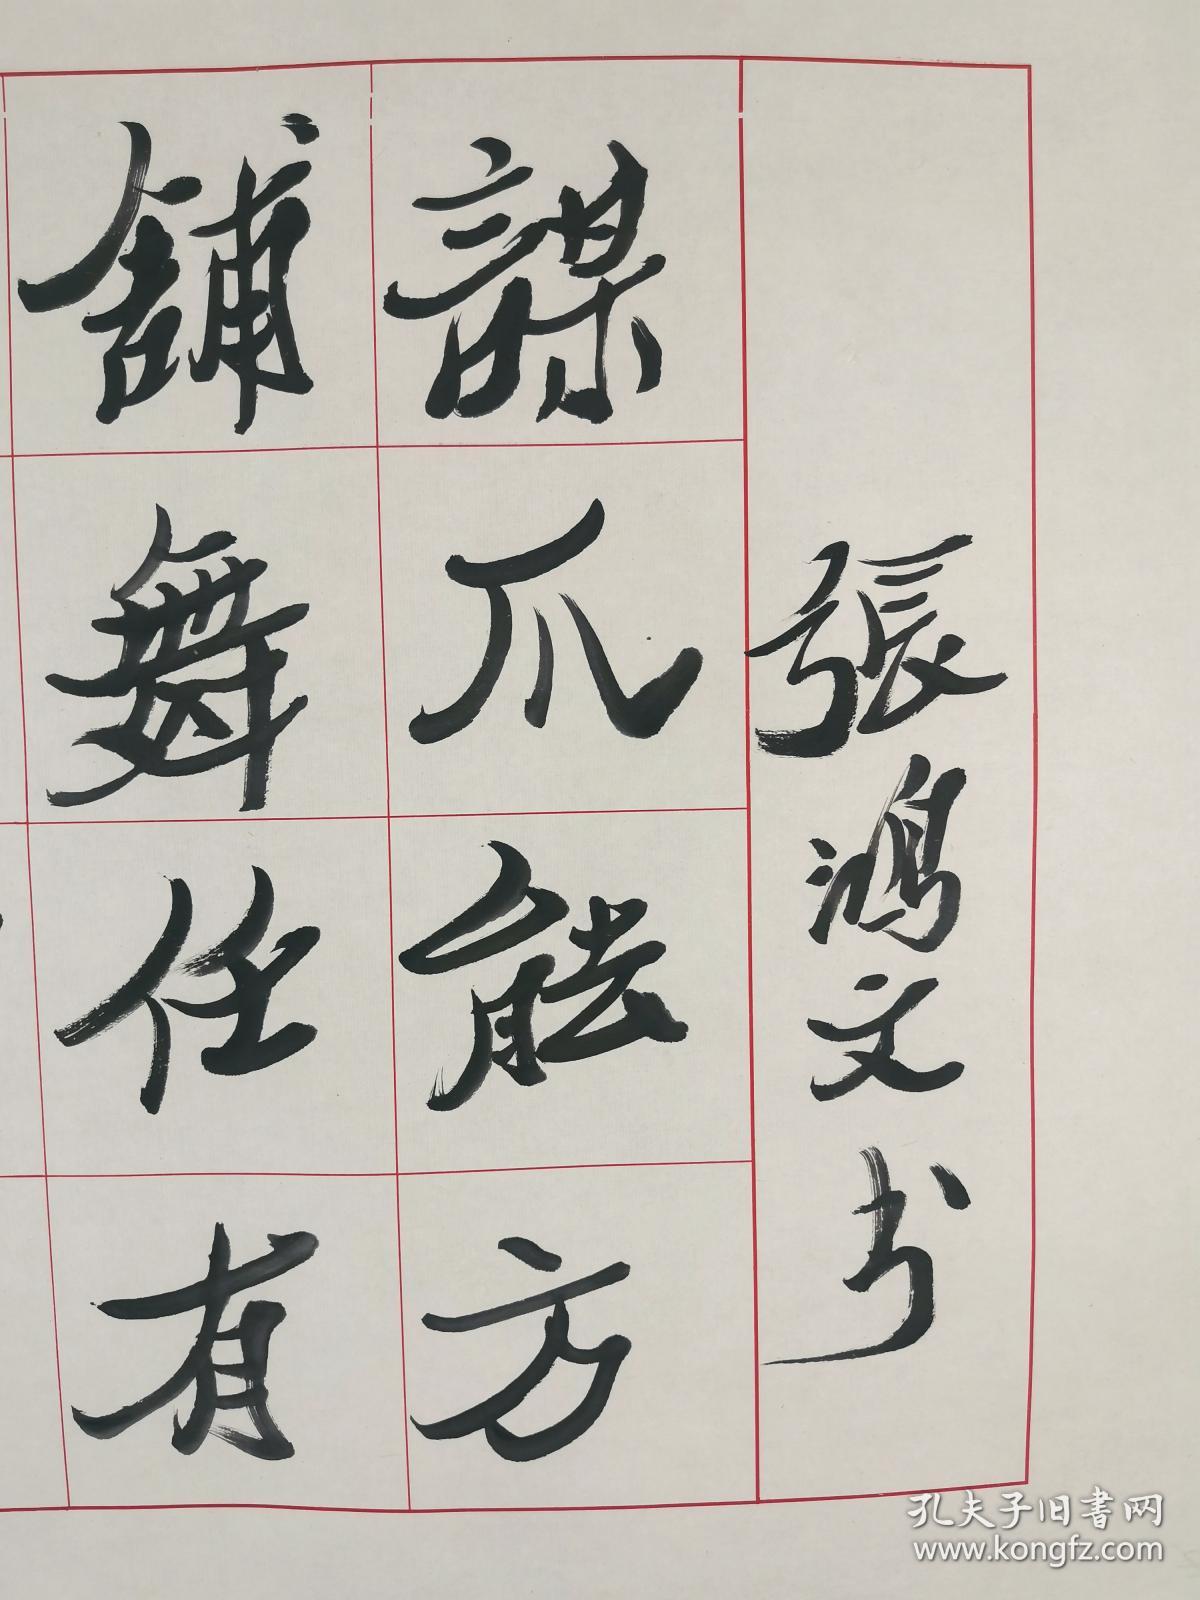 舖謀
舞爪
任能
有方
張鴻文书
孔夫子旧書网
www.kongfz.com